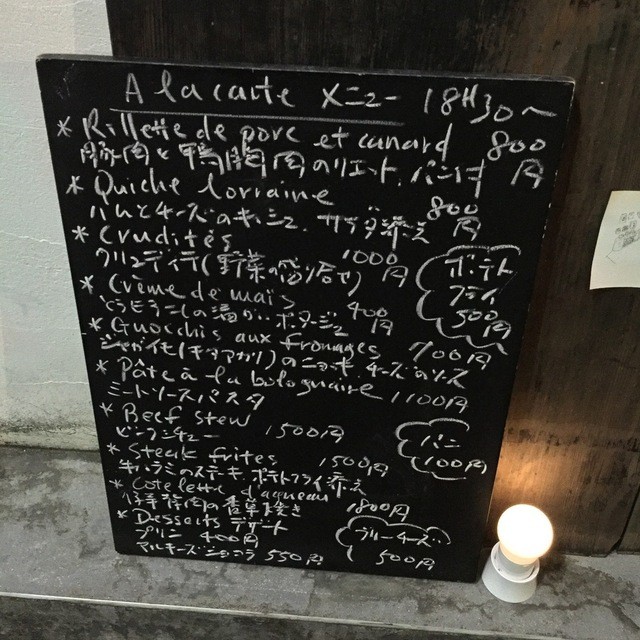 A la carte メニュー 18H30〜
* Rillette de porc et canard 800円
豚肉と鴨胸肉のリエット、パン付
* Quiche lorraine 800円
ハムとチーズのキッシュ、サラダ添え
* Crudités 1000円
クリュディテ(野菜の盛り合せ)
* Crème de maïs 400円
とうもろこしの ポタージュ
* Gnocchis aux fromages 700円
ジャガイモ(キタアカリ)のニョッキ、チーズのソース
* Pâte à la bolognaise 1100円
ミートソースパスタ
* Beef stew 1500円
ビーフシチュー
* Steak frites 1500円
牛ハラミのステーキ、ポテトフライ添え
* Cotelette d'agneau 1800円
仔羊背肉の香草焼き
* Desserts デザート
プリン 400円
マルキーズ・ショコラ 550円
ポテト
フライ
500円
パン
100円
ブルーチーズ
500円